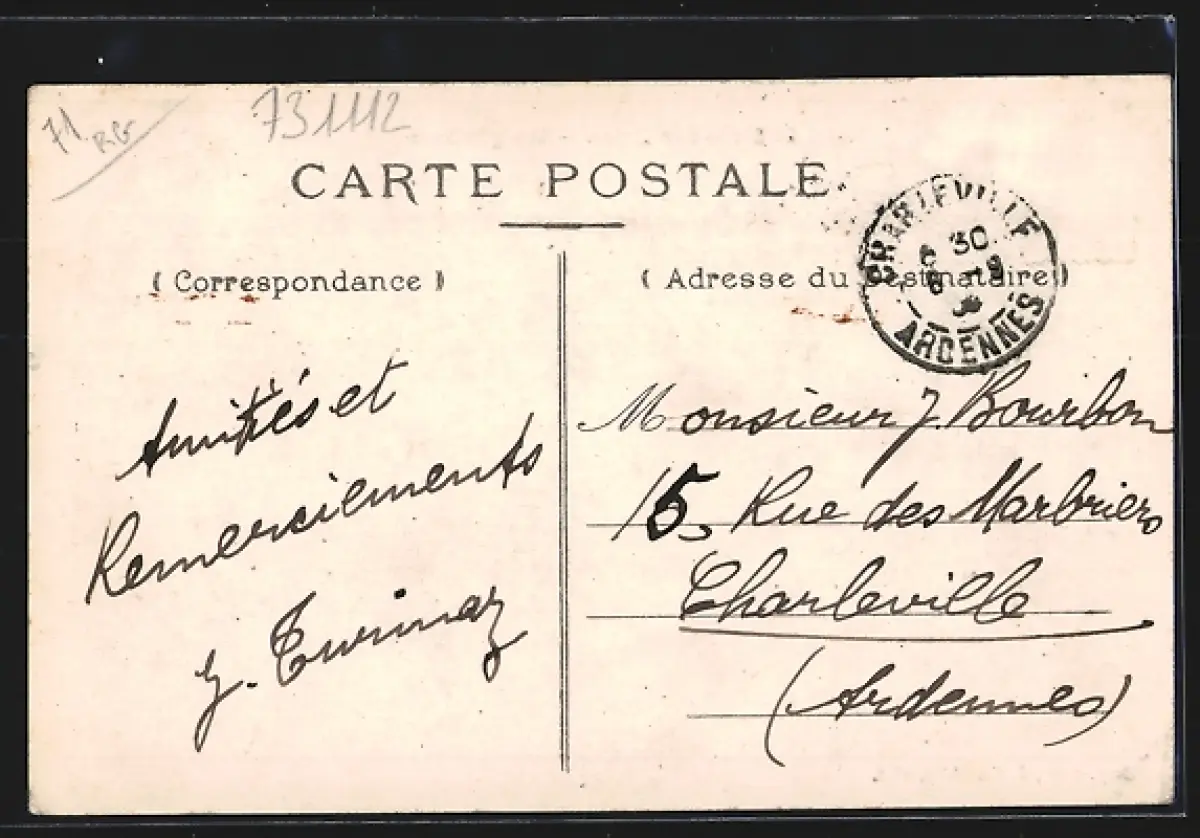 71
RG
731112
CARTE POSTALE
( Correspondance )
( Adresse du Destinataire )
CHARLEVILLE
ARDENNES
Amitiés et
Remerciements
Monsieur J. Bourbon
15, Rue des Marbriers
Charleville
(Ardennes)